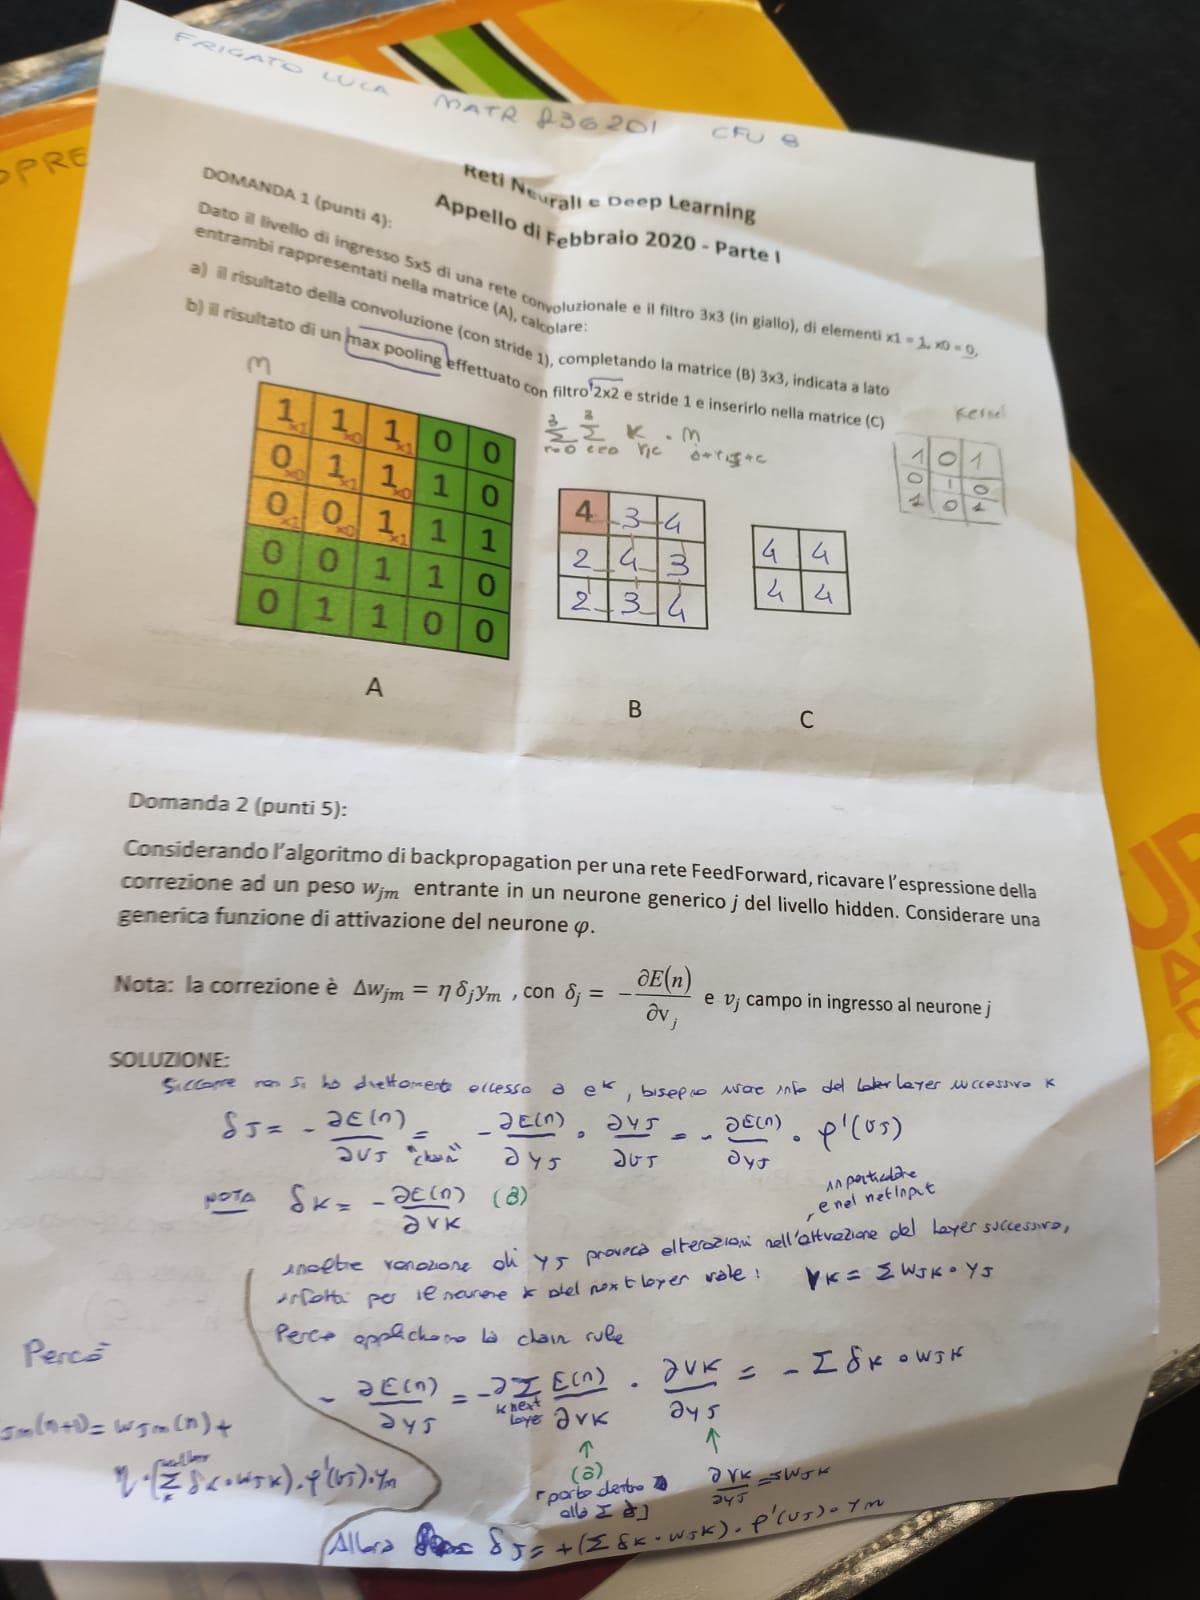 FRIGATO LUCA MATR 836201 CFU 8
OPRE
Reti Neurali e Deep Learning
Appello di Febbraio 2020 - Parte I
DOMANDA 1 (punti 4):
Dato il livello di ingresso 5x5 di una rete convoluzionale e il filtro 3x3 (in giallo), di elementi x1 = 1, x0 = 0,
entrambi rappresentati nella matrice (A), calcolare:
a) il risultato della convoluzione (con stride 1), completando la matrice (B) 3x3, indicata a lato
b) il risultato di un max pooling effettuato con filtro 2x2 e stride 1 e inserirlo nella matrice (C)
M
1x1 1x0 1x1 0 0
0x0 1x1 1x0 1 0
0x1 0x0 1x1 1 1
0 0 1 1 0
0 1 1 0 0
A
4 3 4
2 4 3
2 3 4
B
4 4
4 4
C
Kernel
1 0 1
0 1 0
1 0 1
Domanda 2 (punti 5):
Considerando l'algoritmo di backpropagation per una rete FeedForward, ricavare l'espressione della
correzione ad un peso wjm entrante in un neurone generico j del livello hidden. Considerare una
generica funzione di attivazione del neurone φ.
Nota: la correzione è Δwjm = η δj ym , con δj = − ∂E(n)/∂vj e vj campo in ingresso al neurone j
SOLUZIONE:
Siccome non si ha direttamente accesso a eK, bisogno usare info del layer successivo K
δJ = - ∂E(n)/∂VJ = "chain" - ∂E(n)/∂YJ • ∂YJ/∂VJ = - ∂E(n)/∂YJ • φ'(VJ)
NOTA δK = - ∂E(n)/∂VK (a)
in particolare
, e nel netInput
inoltre variazione di YJ provoca alterazioni nell'attivazione del layer successivo,
infatti per il neurone K del next layer vale: VK = Σ WJK • YJ
Perciò applichiamo la chain rule
- ∂E(n)/∂YJ = -∂ Σ K next layer E(n)/∂VK • ∂VK/∂YJ = - Σ δK • WJK
(a)
[porto dentro
alla Σ ∂]
∂VK/∂YJ = WJK
Allora δJ = + (Σ δK • WJK) • φ'(VJ) • Ym
Perciò
Jm(n+1) = WJm(n) +
η • (Σ δK • WJK) • φ'(VJ) • Ym